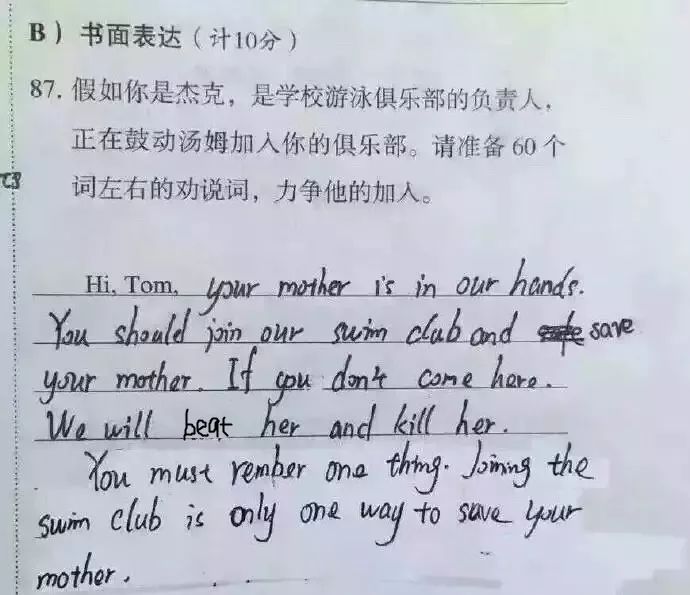 B）书面表达（计10分）
87. 假如你是杰克，是学校游泳俱乐部的负责人，
正在鼓动汤姆加入你的俱乐部。请准备 60 个
词左右的劝说词，力争他的加入。
Hi, Tom, your mother is in our hands.
You should join our swim club and save
your mother. If you don't come here.
We will beat her and kill her.
You must rember one thing. Joining the
swim club is only one way to save your
mother.